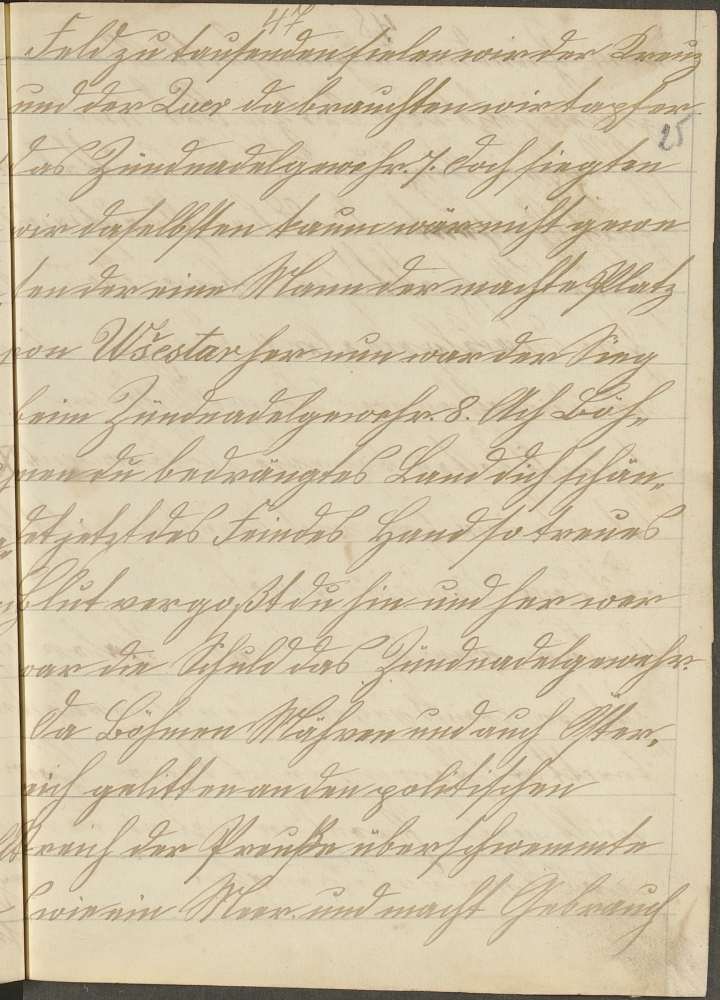 47
Feld zu tausenden fielen wir der Kreuz
und der Quer da brauchten wir tapfer
25
das Zündnadelgewehr. 7. Doch siegten
wir daselbsten kaum wär nicht gewe
sen der eine Mann der machte Platz
von Wšestar her nun war der Sieg
beim Zündnadelgewehr. 8. Ach Böh„
men du bedrängtes Land dich schän„
det jetzt des Feindes Hand so treues
Blut vergoßt du hin und her wer
war die Schuld das Zündnadelgewehr.
Da Böhmen Mähren und auch Öster„
reich gelitten an den politischen
Streich der Preuße überschwemmte
wie ein Meer. und macht Gebrauch